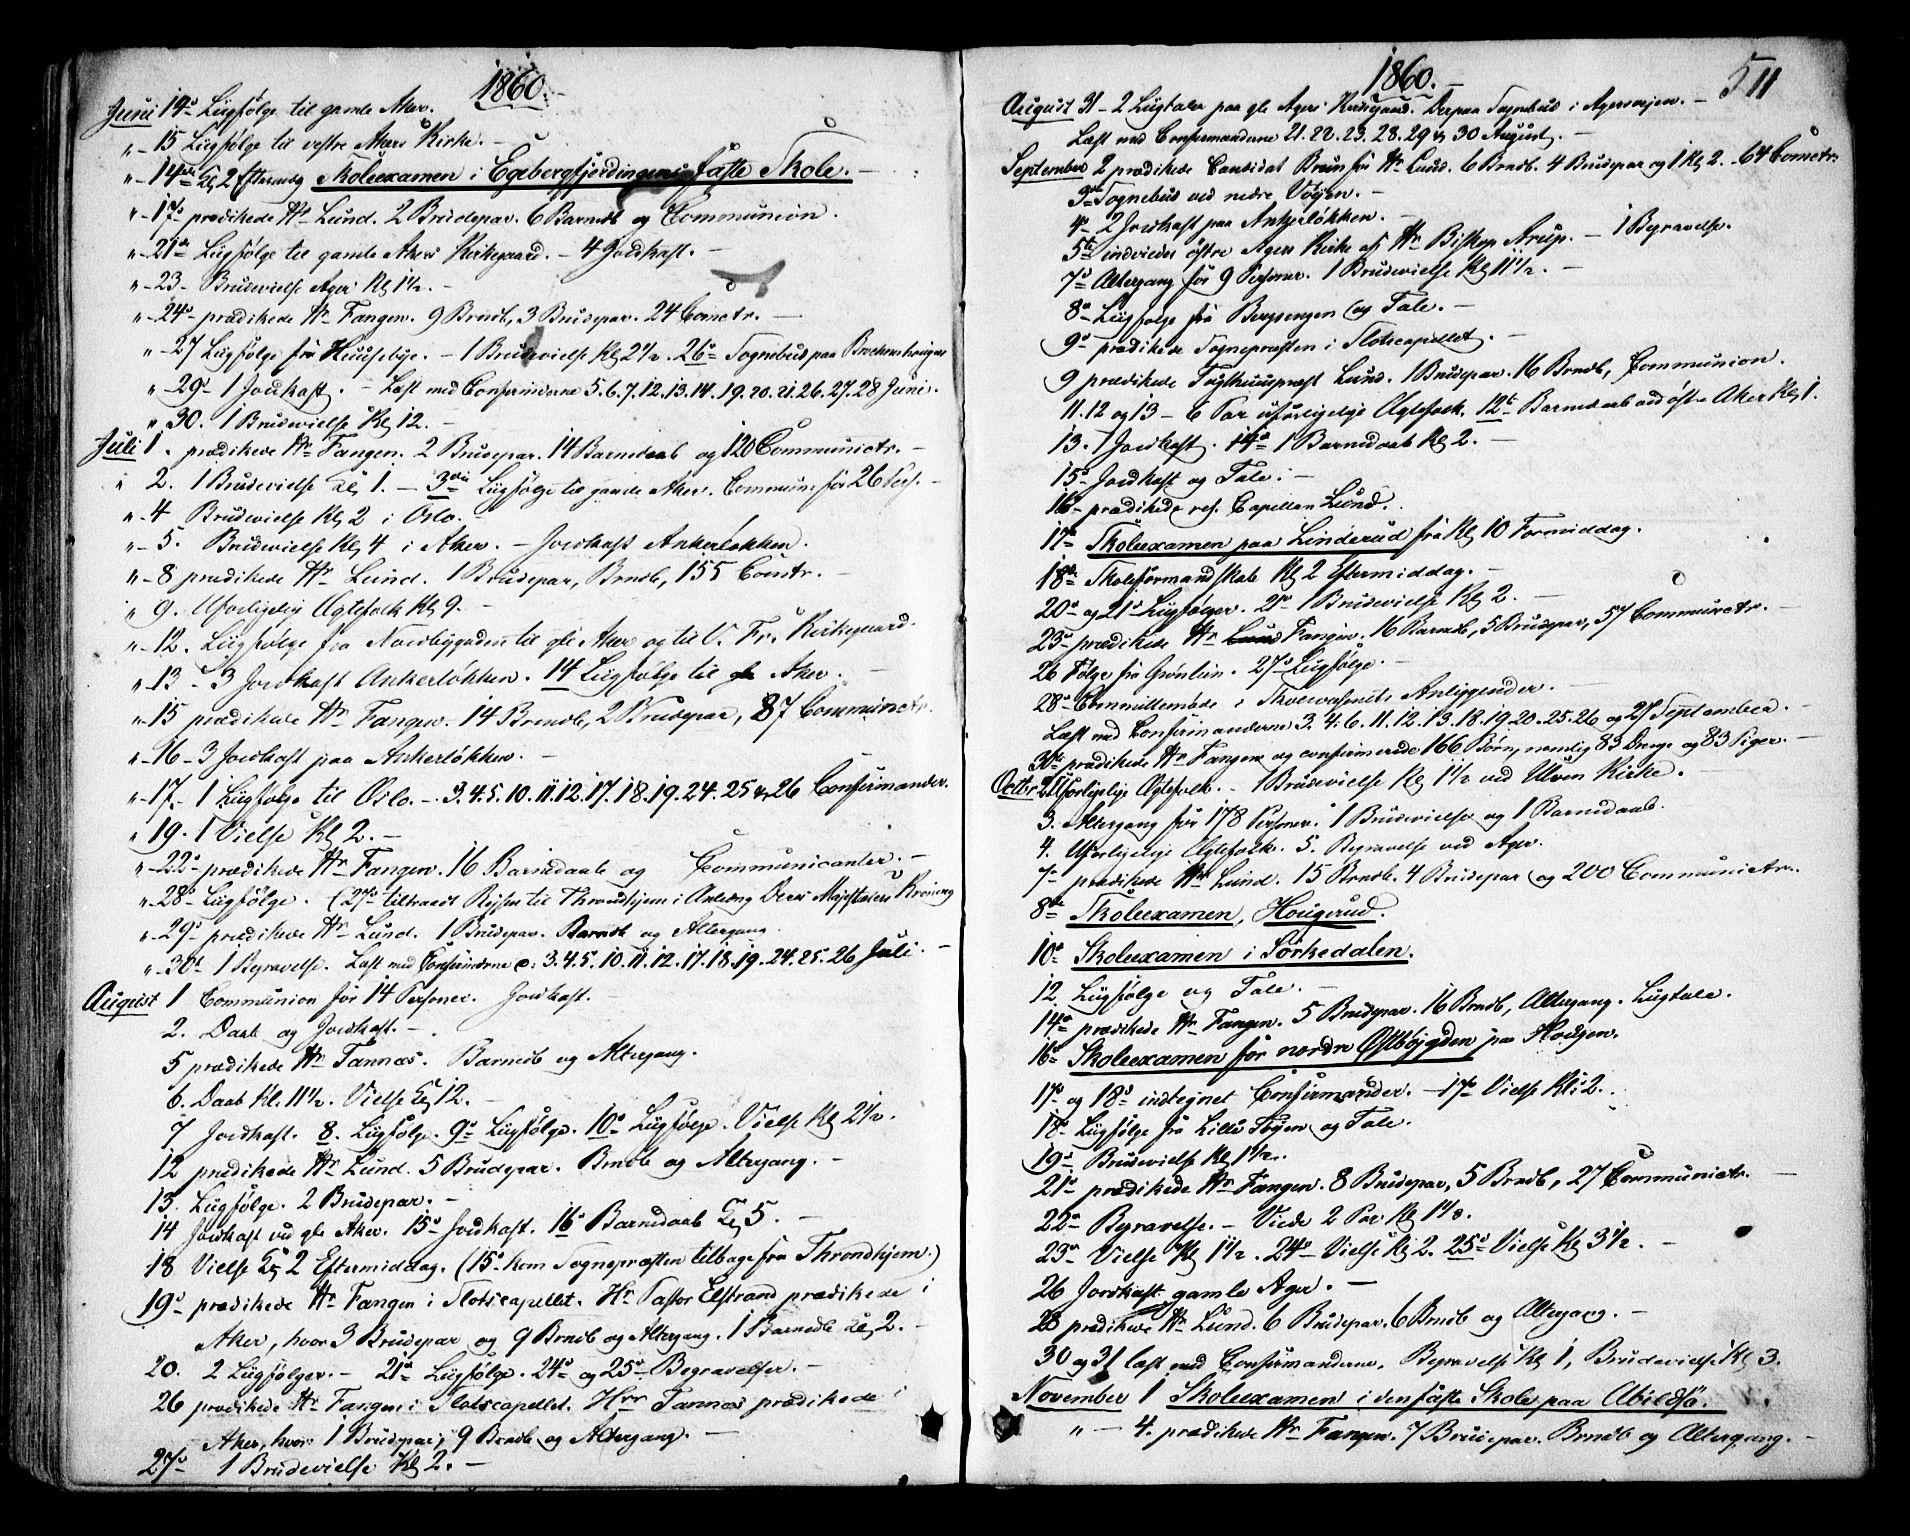 1860.
Juni 14de Liigfølge til gamle Aker.
"-15 Liigfølge til vestre Akers Kirke.-
"-14de Kl 2 Efterm Skoleexamen i Egebergfjerdingens faste Skole.-
"-17de prædikede Hr Lund. 2 Brudepar. 6 Barnedb og Communion.
"-21de Liigfølge til gamle Akers Kirkegaard.-4 Jordkast.-
"-23- Brudevielse Ager Kl 1½.-
"-24de prædikede Hr Fangen. 9 Brndb, 3 Brudepar. 24 Comctr.-
"-27 Liigfølge fra Huusebye.-1 Brudevielse Kl 2½. 26de Sognebud paa
"-29de 1 Jordkast.- Læst med Confirmderne 5.6.7.12.13.14.19.20.21.26.27.28 Juni.
"30. 1 Brudevielse Kl 12.-
Juli 1. prædikede Hr Fangen. 2 Brudepar. 14 Barnedaab og 120 Communictr.-
" 2. 1 Brudevielse Kl 1.- 3die Liigfølge til gamle Aker. Commun. för 26 Pers.-
"-4 Brudevielse Kl 2 i Oslo.-
"-5. Brudevielse Kl 4 i Aker.- Jordkast Ankerløkken.
"-8 prædikede Hr Lund. 1 Brudepar, Brndb, 155 Comtr.-
"9. Uforligelig Ægtefolk Kl 9.-
"-12. Liigfølge fra Nordbygaden til gle Aker og til V. Fr. Kirkegaard.
"-13-3 Jordkast Ankerløkken. 14 Liigfølge til gle Aker.-
"-15 prædikede Hr Fangen. 14 Brndb, 2 Brudepar, 87 Communictr.
"-16-3 Jordkast paa Ankerløkken.-
"-17.-1 Liigfølge til Oslo.-3.4.5.10.11.12.17.18.19.24.25 & 26 Confirmander.
"19.1 Vielse Kl 2.-
"-22de prædikede Hr Fangen. 16 Barnedaab og Communicanter.-
"-28de Liigfølge. (27de tiltraadt Reisen til Throndhjem i Anledng Deres Majestæters Kroning
"-29de prædikede Hr Lund. 1 Brudepar. Barndb og Altergang.
"-30te 1 Begravelse. Læst med Confirmderne d: 3.4.5.10.11.12.17.18.19.24.25.26 Juli.-
August 1 Communion för 14 Personer. Jordkast.-
2. Daab og Jordkast.-
5 prædikede Hr Tannæs. Barnedb og Altergang.
6. Daab Kl. 11½. Vielse Kl 12.-
7 Jordkast. 8. Liigfølge. 9de Liigfølge. 10de Liigfølge. Vielse Kl 2½.
12 prædikede Hr Lund. 5 Brudepar. Brndb og Altergang.-
13. Liigfølge. 2 Brudepar.-
14 Jordkast ved gle Aker. 15de Jordkast. 16de Barnedaab Kl 5.-
18 Vielse Kl 2 Eftermiddag. (15de kom Sognepræsten tilbage fra Throndhjem.)
19de prædikede Hr Fangen i Slotscapellet. Hr Pastor Elstrand prædikede i
Aker, hvor 3 Brudepar og 9 Brndb og Altergang. 1 Barnedb Kl 2.-
20. 2 Liigfølger.- 21de Liigfølge. 24de og 25de Begravelser.-
26 prædikede Hr Fangen i Slotscapellet. Hrr Tannæs prædikede i
Aker, hvor 1 Brudepar, 9 Brndb og Altergang.-
27de 1 Brudevielse Kl 2.-
1860.-
511
August 31-2 Liigtaler paa gle Agers Kirkegaard. Derpaa Sognebud i Agersvejen.-
Læst med Confirmanderne 21.22.23.28.29 & 30 August.-
September 2 prædikede Candidat Bruun for Hr Lund. 6 Brndb. 4 Brudepar og 1 Kl 2.-64 Comctr.
3die Sognebud ved nedre Vøyen.-
4de 2 Jordkast paa Ankerløkken.-
5te indviedes østre Agers Kirke af Hr Biskop Arup.- 1 Begravelse.
7de Altergang för 9 Personer. 1 Brudevielse Kl 11½.-
8de Liigfølge fra Bergsengen og Tale.-
9de prædikede Sognepræsten i Slotscapellet.-
9 prædikede Tugthuuspræst Lund. 1 Brudepar. 16 Brndb, Communion.
11.12 og 13-6 Par uforligelige Ægtefolk. 12te Barnedaab ved östre Aker Kl 1.
13. 1 Jordkast. 14de 1 Barnedaab Kl 2.-
15de Jordkast og Tale.-
16- prædikede res. Capellan Lund.
17de Skoleexamen paa Linderud fra Kl 10 Formiddag.
18de Skoleformandskab Kl 2 Eftermiddag.-
20de og 21de Liigfølger. 21de 1 Brudevielse Kl 2.-
23de prædikede Hr Lund Fangen. 16 Barndb, 5 Brudepar, 57 Communictr.
26 Følge fra Grønlien. 27de Liigfølge.-
28de Committemøde i Skolevæsnets Anliggender.-
Læst med Confirmanderne 3.4.6.11.12.13.18.19.20.25.26 og 27 September.-
30te prædikede Hr Fangen og confirmerede 166 Børn, nemlig 83 Drenge og 83 Piger.-
Octbr 2 Uforligelige Ægtefolk.- 1 Brudevielse Kl 1½ ved Ulven Kirke.-
3. Altergang för 178 Personer. 1 Brudevielse og 1 Barnedaab.
4. Uforligelige Ægtefolk. 5. Begravelse ved Ager.
7de prædikede Hr Lund. 15 Brndb. 4 Brudepar og 200 Communictr.
8de Skoleexamen, Hougerud.
10de Skoleexamen i Sörkedalen.
12 Liigfølge og Tale.-
14de prædikede Hr Fangen. 5 Brudepar. 16 Brndb, Altergang. Liigtale.
16de Skoleexamen for nordre Østbygden paa Hougen.
17de og 18de indtegnet Confirmander.-17de Vielse Kl: 2.
18de Liigfølge fra Lille Tøyen og Tale.
19de Brudevielse Kl 1½.
21de prædikede Hr Fangen. 8 Brudepar, 5 Brndb, 27 Communictr.-
22de Begravelse.- Viede 2 Par Kl 1½.
23de Vielse Kl 1½. 24de Vielse Kl 2. 25de Vielse Kl 3½.-
26 Jordkast gamle Ager.-
28 prædikede Hr Lund. 6 Brudepar. 6 Brndb og Altergang.-
30 og 31 læst med Confirmanderne. Begravelse Kl 1, Brudevielse Kl 3.
November 1 Skoleexamen i den faste Skole paa Abildsö.-
"-4. prædikede Hr Fangen. 7 Brudepar. Brndb og Altergang.-